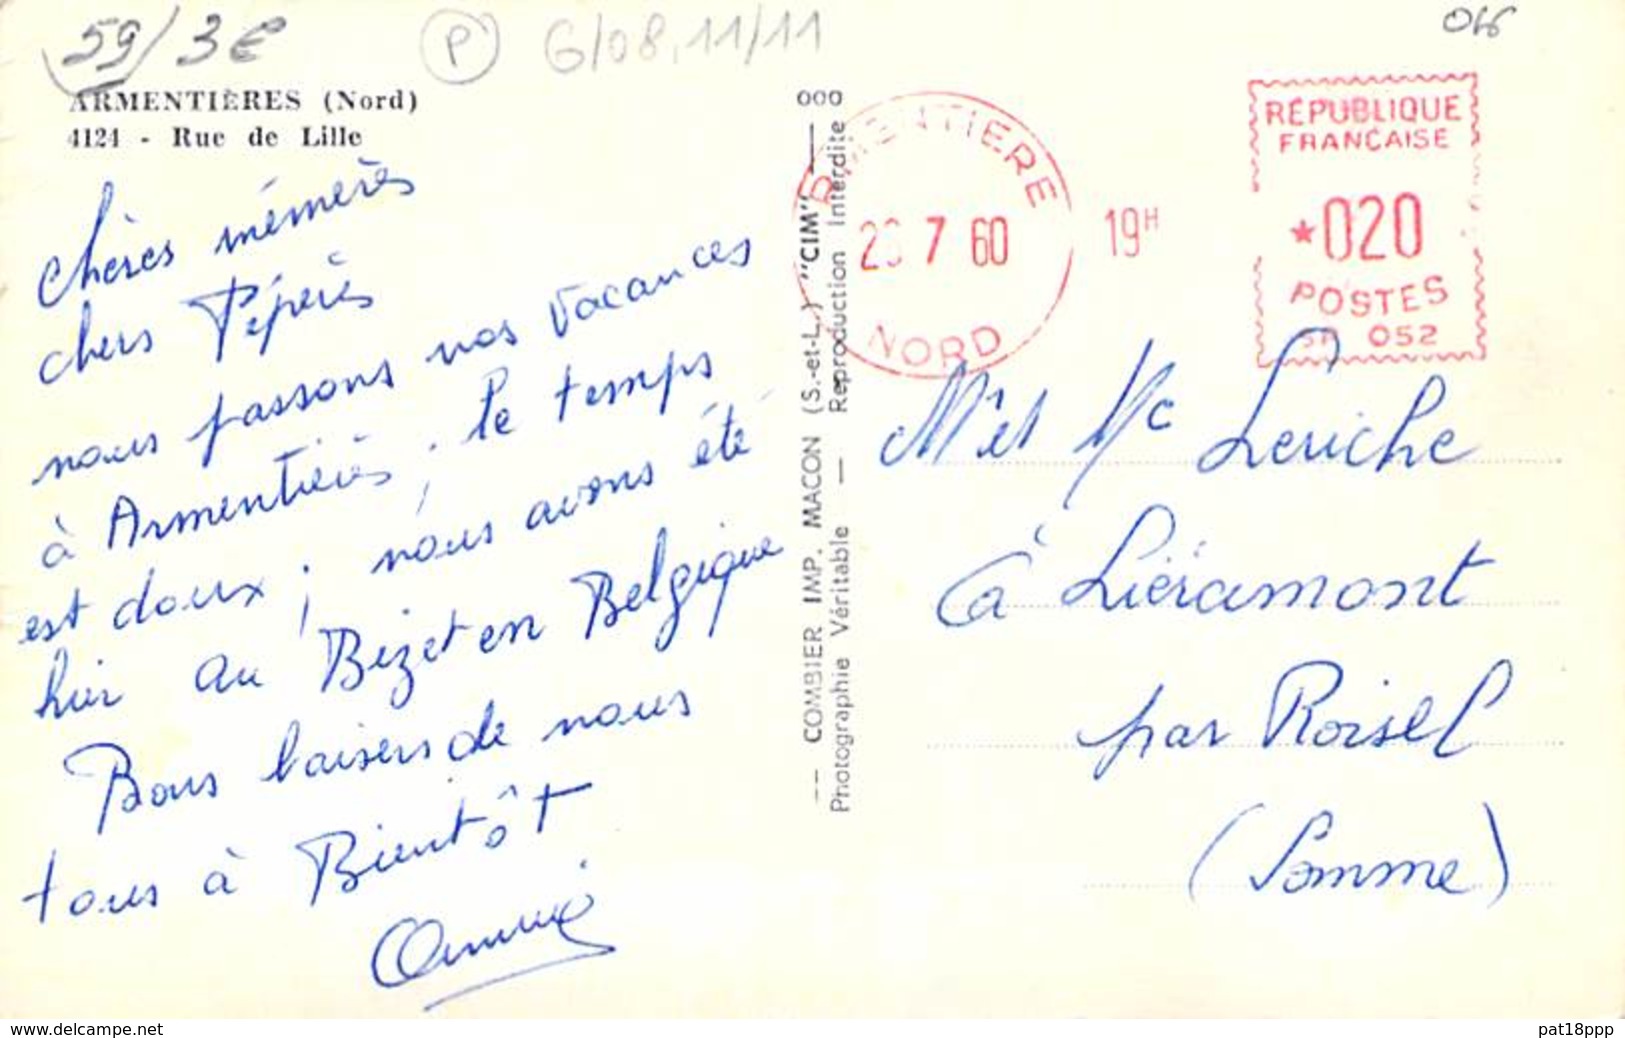 59/3€
P
G/08,11/11
ARMENTIÈRES (Nord)
4124 - Rue de Lille
Chères mémères
chers Pépères
nous passons nos vacances
à Armentières ; le temps
est doux ; nous avons été
hier au Bizet en Belgique
Bons baisers de nous
tous à Bientôt
Annie
000
-- COMBIER IMP. MACON (S.-et-L.) "CIM" --
Photographie Véritable -- Reproduction Interdite
RMENTIERE
7 60
NORD
19H
RÉPUBLIQUE
FRANÇAISE
*020
POSTES
052
Leriche
à Liéramont
par Roisel
(Somme)
www.delcampe.net
pat18ppp